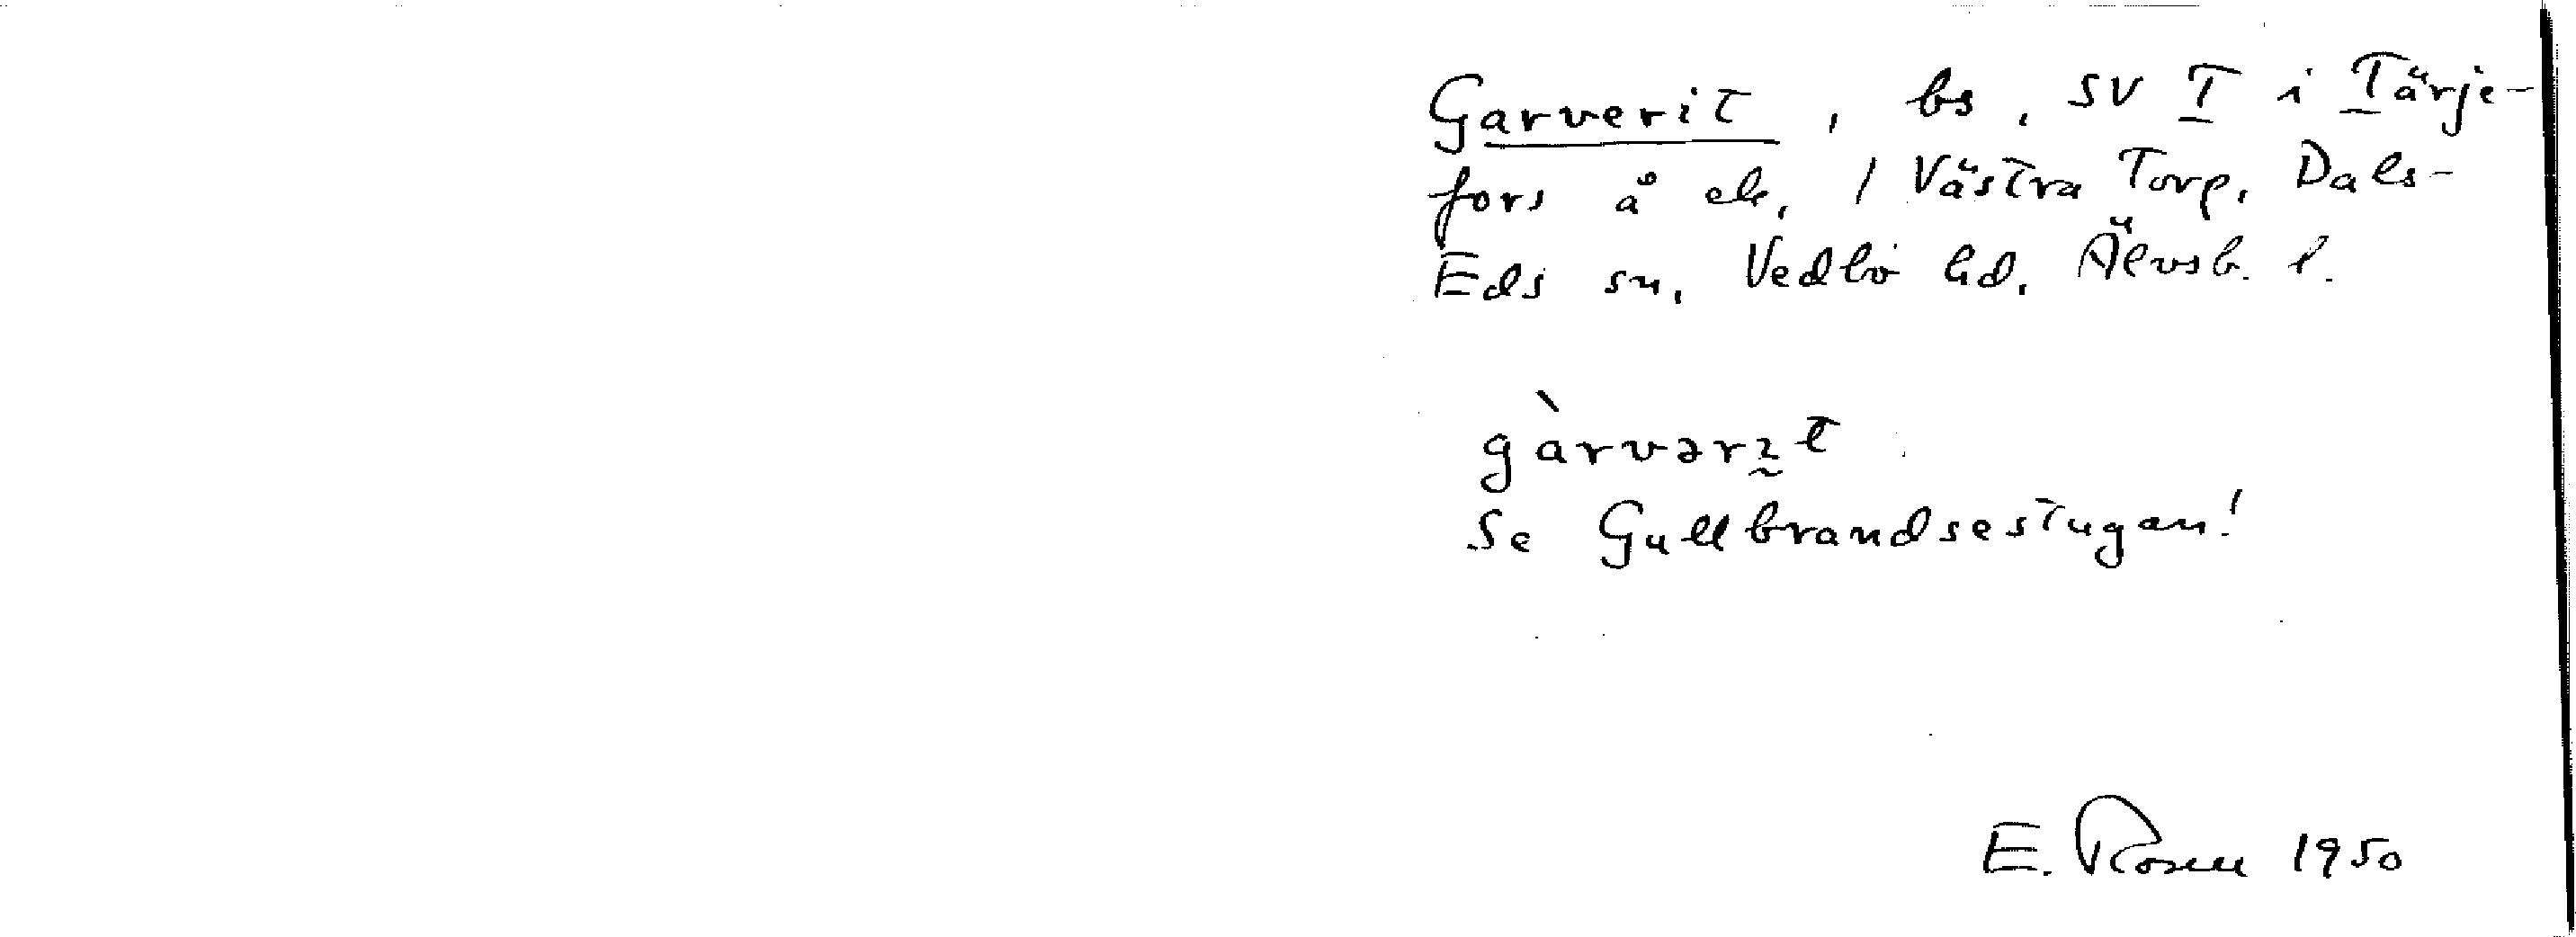 Garverit, bs, SV T i Tärje-
fors å ek, 1 Västra Torp, Dals-
Eds sn, Vedbo hd, Älvsb. l.
gàrvərɪ̰t
Se Gullbrandsestugan!
E. Rosen 1950